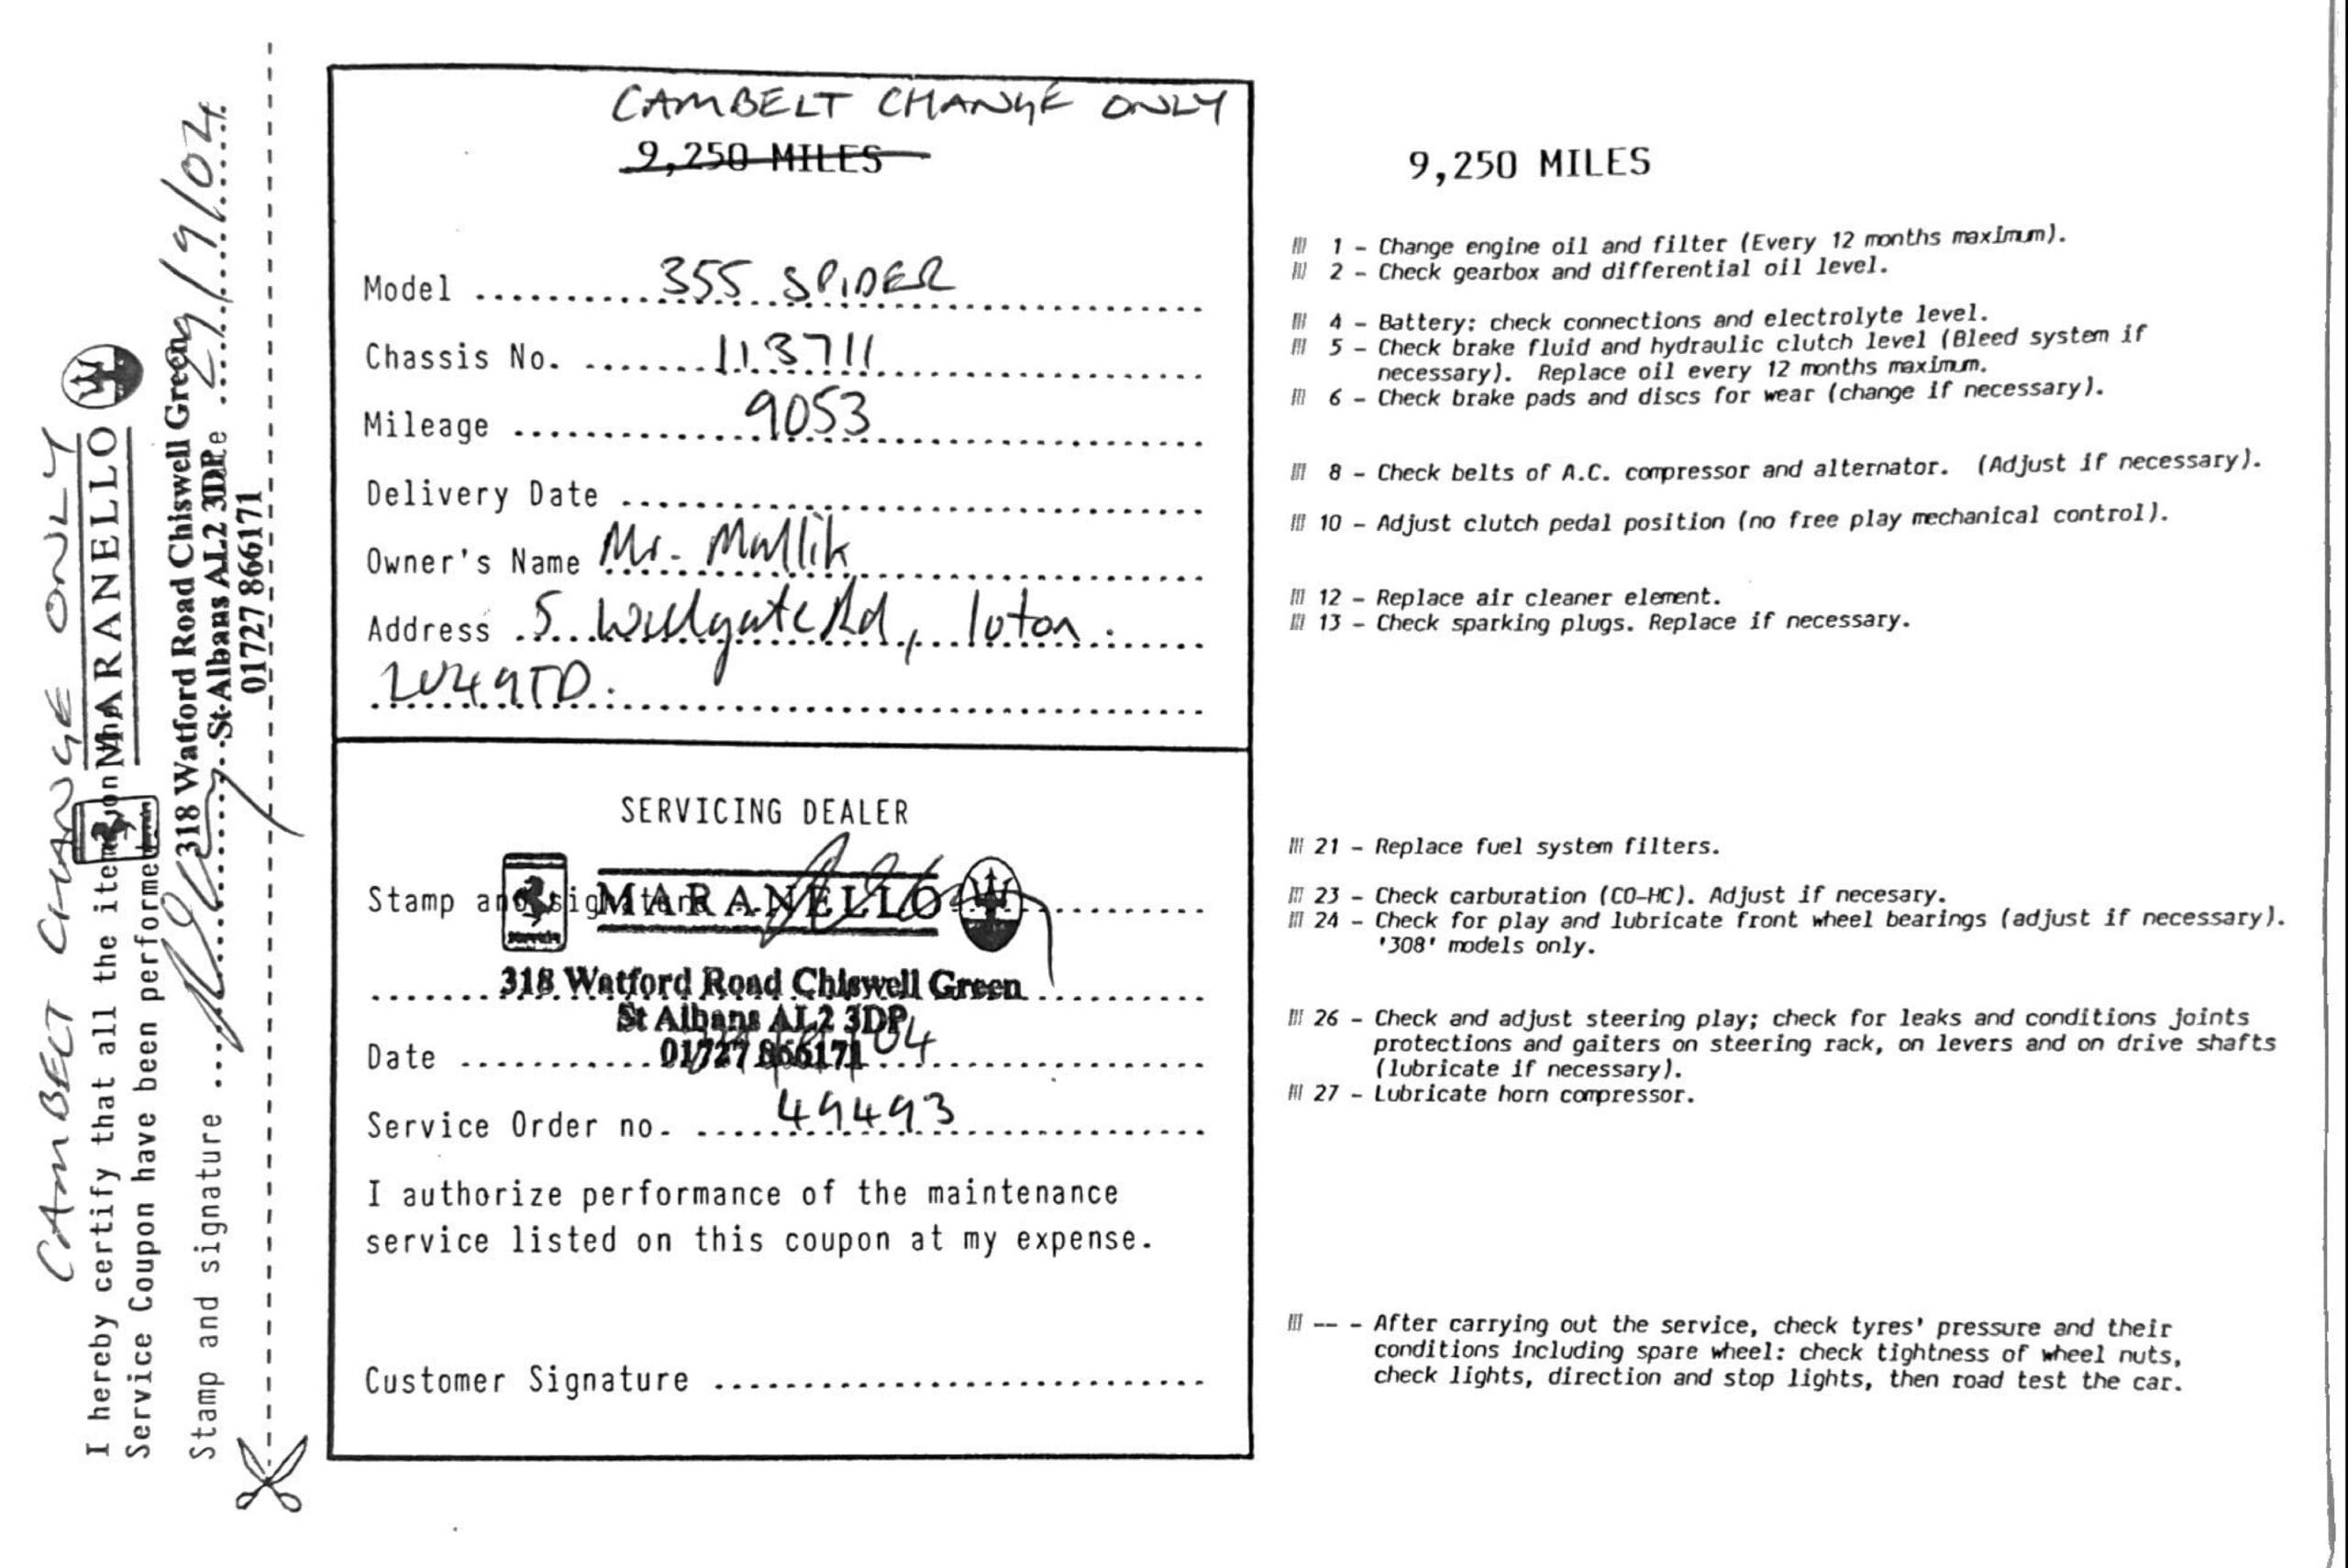 CAMBELT CHANGE ONLY
I hereby certify that all the items on the
Service Coupon have been performed
MARANELLO
318 Watford Road Chiswell Green
St Albans AL2 3DP
01727 866171
Stamp and signature
29/9/04
CAMBELT CHANGE ONLY
9,250 MILES
Model ..... 355 SPIDER
Chassis No. ..... 113711
Mileage ..... 9053
Delivery Date .....
Owner's Name Mr. Mallik
Address 5 Wellgate Rd, luton.
LU4 9TD.
SERVICING DEALER
Stamp and signature
MARANELLO
318 Watford Road Chiswell Green
St Albans AL2 3DP
01727 866171
Date ..... 04
Service Order no. ..... 49493
I authorize performance of the maintenance
service listed on this coupon at my expense.
Customer Signature .....
9,250 MILES
1 - Change engine oil and filter (Every 12 months maximum).
2 - Check gearbox and differential oil level.
4 - Battery: check connections and electrolyte level.
5 - Check brake fluid and hydraulic clutch level (Bleed system if
necessary). Replace oil every 12 months maximum.
6 - Check brake pads and discs for wear (change if necessary).
8 - Check belts of A.C. compressor and alternator. (Adjust if necessary).
10 - Adjust clutch pedal position (no free play mechanical control).
12 - Replace air cleaner element.
13 - Check sparking plugs. Replace if necessary.
21 - Replace fuel system filters.
23 - Check carburation (CO-HC). Adjust if necesary.
24 - Check for play and lubricate front wheel bearings (adjust if necessary).
'308' models only.
26 - Check and adjust steering play; check for leaks and conditions joints
protections and gaiters on steering rack, on levers and on drive shafts
(lubricate if necessary).
27 - Lubricate horn compressor.
-- - After carrying out the service, check tyres' pressure and their
conditions including spare wheel: check tightness of wheel nuts,
check lights, direction and stop lights, then road test the car.